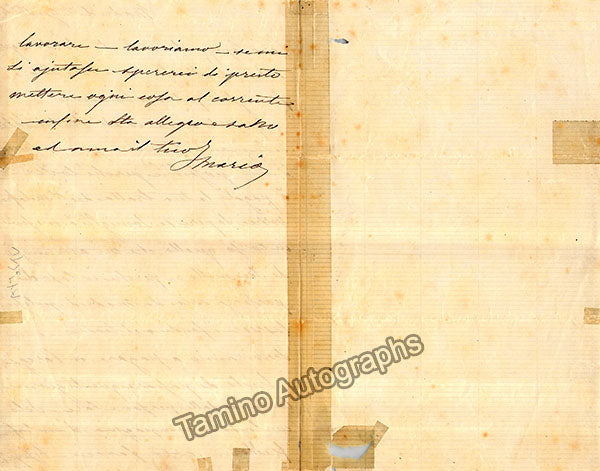 lavorare — lavoriamo — se mi
si ajutasse spererei di presto
mettere ogni cosa al corrente
infine sta allegro e sano
ed ama il tuo
Mario
Tamino Autographs